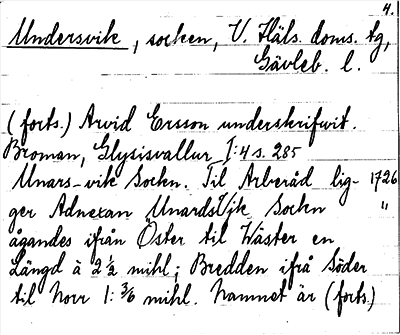 4.
Undersvik, socken, V. Häls. doms. tg,
Gävleb. l.
(forts.) Arvid Ersson underskrifwit.
Broman, Glysisvallur I:4 s. 285
Unars-vik Sockn. Til Arberåd lig- 1726
ger Adnexan UnardsWjk Sockn "
ågandes ifrån Öster til Wäster en
Längd à 2 1/2 mihl; Bredden ifrå Söder
til Norr 1: 3/6 mihl. Namnet är (forts.)